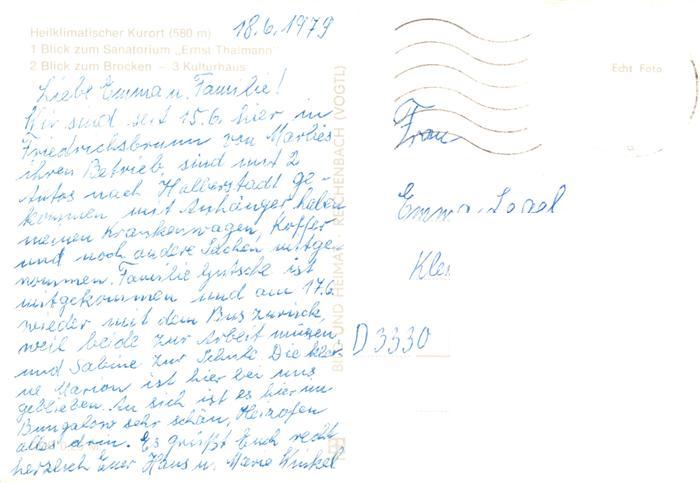 18.6.1979
Heilklimatischer Kurort (580 m)
1 Blick zum Sanatorium „Ernst Thälmann"
2 Blick zum Brocken – 3 Kulturhaus
Echt Foto
Liebe Emma u. Familie!
Wir sind seit 15.6. hier in
Friedrichsbrunn von Marlies
ihren Betrieb, sind mit 2
Autos nach Halberstadt ge-
kommen mit Anhänger haben
meinen Krankenwagen, Koffer
und noch andere Sachen mitge-
nommen. Familie Gutsche ist
mitgekommen und am 17.6.
wieder mit dem Bus zurück
weil beide zur Arbeit müssen
und Sabine zur Schule Die klei-
ne Marion ist hier bei uns
geblieben. An sich ist es hier im
Bungalow sehr schön, Heizofen
alles drin. Es grüßt Euch recht
herzlich Euer Hans u. Marie Winkel
BILD UND HEIMAT REICHENBACH (VOGTL)
Frau
Emma
Klei
D 3330